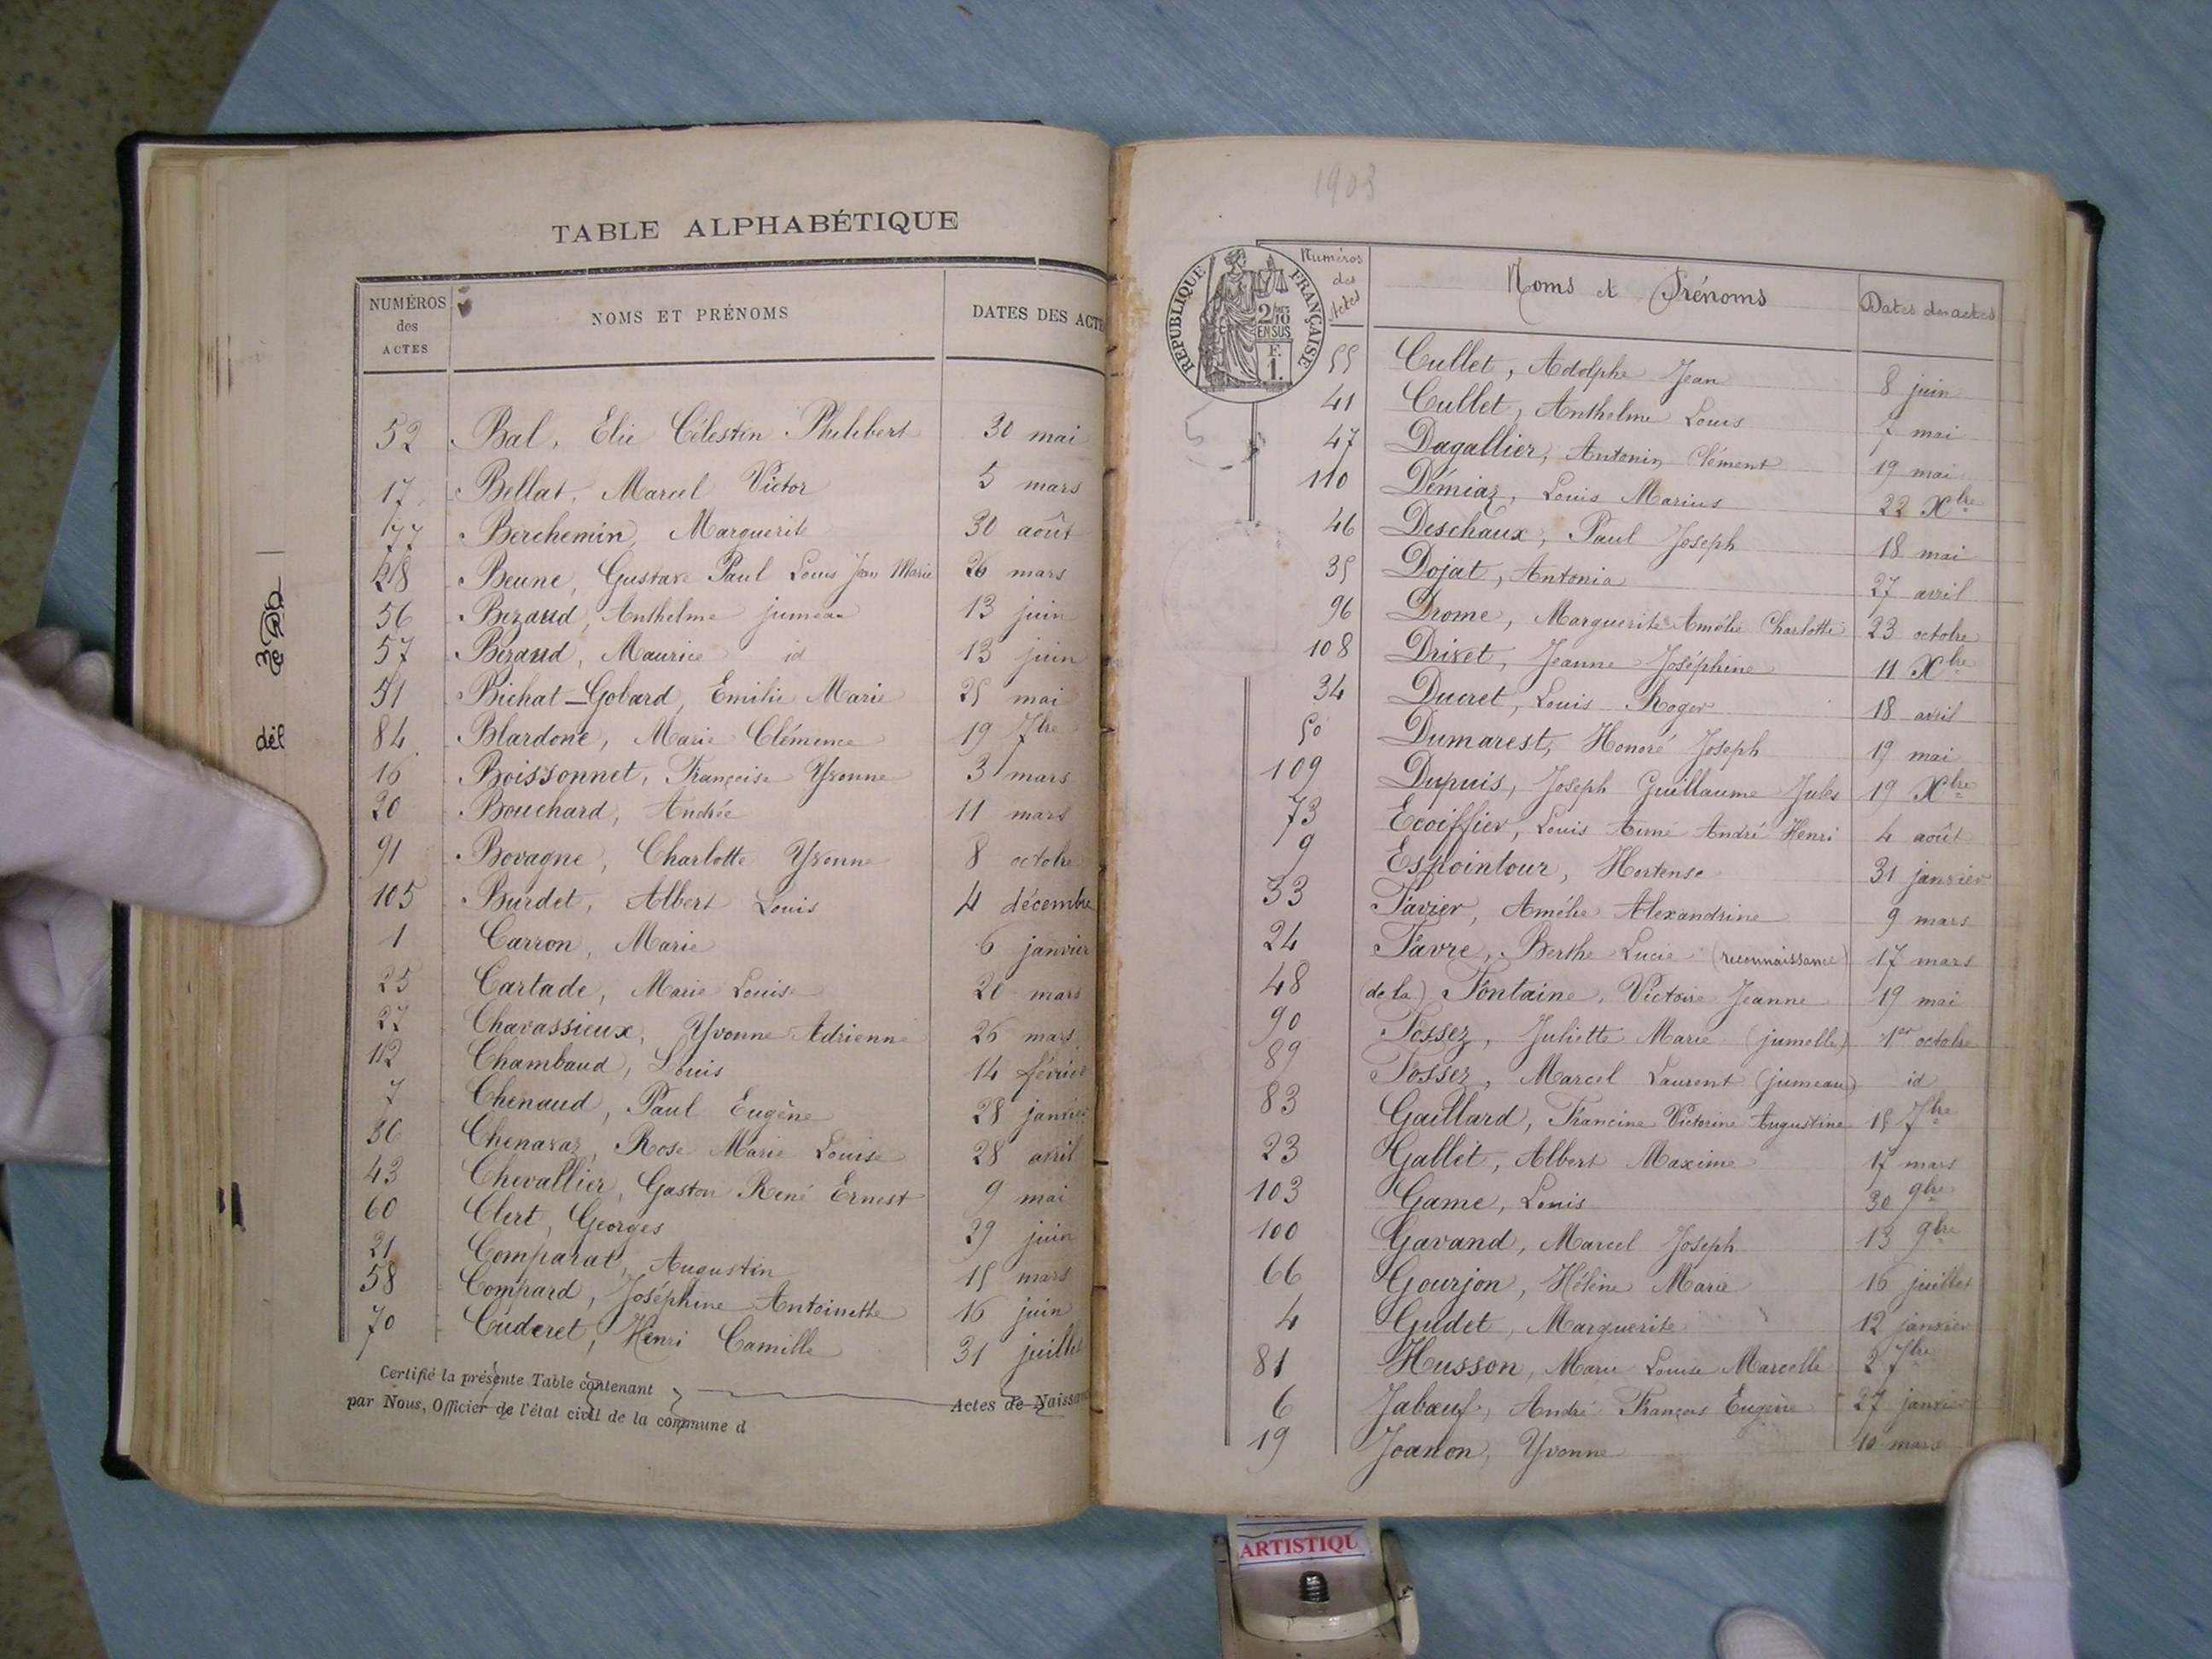 TABLE ALPHABÉTIQUE
NUMÉROS des ACTES NOMS ET PRÉNOMS DATES DES ACTE
52 Bal, Elie Célestin Philibert 30 mai
17 Bellat, Marcel Victor 5 mars
77 Berchemin, Marguerite 30 août
28 Beune, Gustave Paul Louis Jean Marie 26 mars
56 Béraud, Anthelme jumeau 13 juin
57 Béraud, Maurice id 13 juin
51 Bichat-Gobard, Emilie Marie 25 mai
84 Blardone, Marie Clémence 19 7bre
16 Boissonnet, Françoise Yvonne 3 mars
20 Bouchard, Andrée 11 mars
91 Bovagne, Charlotte Yvonne 8 octobre
105 Burdet, Albert Louis 4 décembre
1 Carron, Marie 6 janvier
25 Cartade, Marie Louise 20 mars
27 Chavassieux, Yvonne Adrienne 26 mars
12 Chambaud, Louis 14 février
7 Chenaud, Paul Eugène 28 janvier
36 Chenavaz, Rose Marie Louise 28 avril
43 Chevallier, Gaston René Ernest 9 mai
60 Clert, Georges 29 juin
21 Comparat, Augustin 15 mars
58 Compard, Joséphine Antoinette 16 juin
70 Cuderet, Henri Camille 31 juillet
Certifié la présente Table contenant Actes de Naissan
par Nous, Officier de l'état civil de la commune d
dél
1903
RÉPUBLIQUE FRANÇAISE
2/10 EN SUS
F. 1.
Numéros des Actes Noms et Prénoms Dates des actes
55 Cullet, Adolphe Jean 8 juin
41 Cullet, Anthelme Louis 7 mai
47 Dagallier, Antonin Clément 19 mai
110 Démiaz, Louis Marius 22 Xbre
46 Deschaux, Paul Joseph 18 mai
35 Dojat, Antonia 27 avril
96 Drome, Marguerite Amélie Charlotte 23 octobre
108 Drivet, Jeanne Joséphine 11 Xbre
34 Ducret, Louis Roger 18 avril
50 Dumarest, Honoré Joseph 19 mai
109 Dupuis, Joseph Guillaume Jules 19 Xbre
73 Ecoiffier, Louis Aimé André Henri 4 août
9 Espointour, Hortense 31 janvier
33 Favier, Amélie Alexandrine 9 mars
24 Favre, Berthe Lucie (reconnaissance) 17 mars
48 (de la) Fontaine, Victoire Jeanne 19 mai
90 Fossez, Juliette Marie (jumelle) 1er octobre
89 Fossez, Marcel Laurent (jumeau) id
83 Gaillard, Francine Victorine Augustine 15 7bre
23 Gallet, Albert Maxime 17 mars
103 Game, Louis 30 9bre
100 Gavand, Marcel Joseph 13 9bre
66 Gourjon, Hélène Marie 16 juillet
4 Gudet, Marguerite 12 janvier
81 Husson, Marie Louise Marcelle 2 7bre
6 Jabœuf, André François Eugène 27 janvier
19 Joanon, Yvonne 10 mars
ARTISTIQU